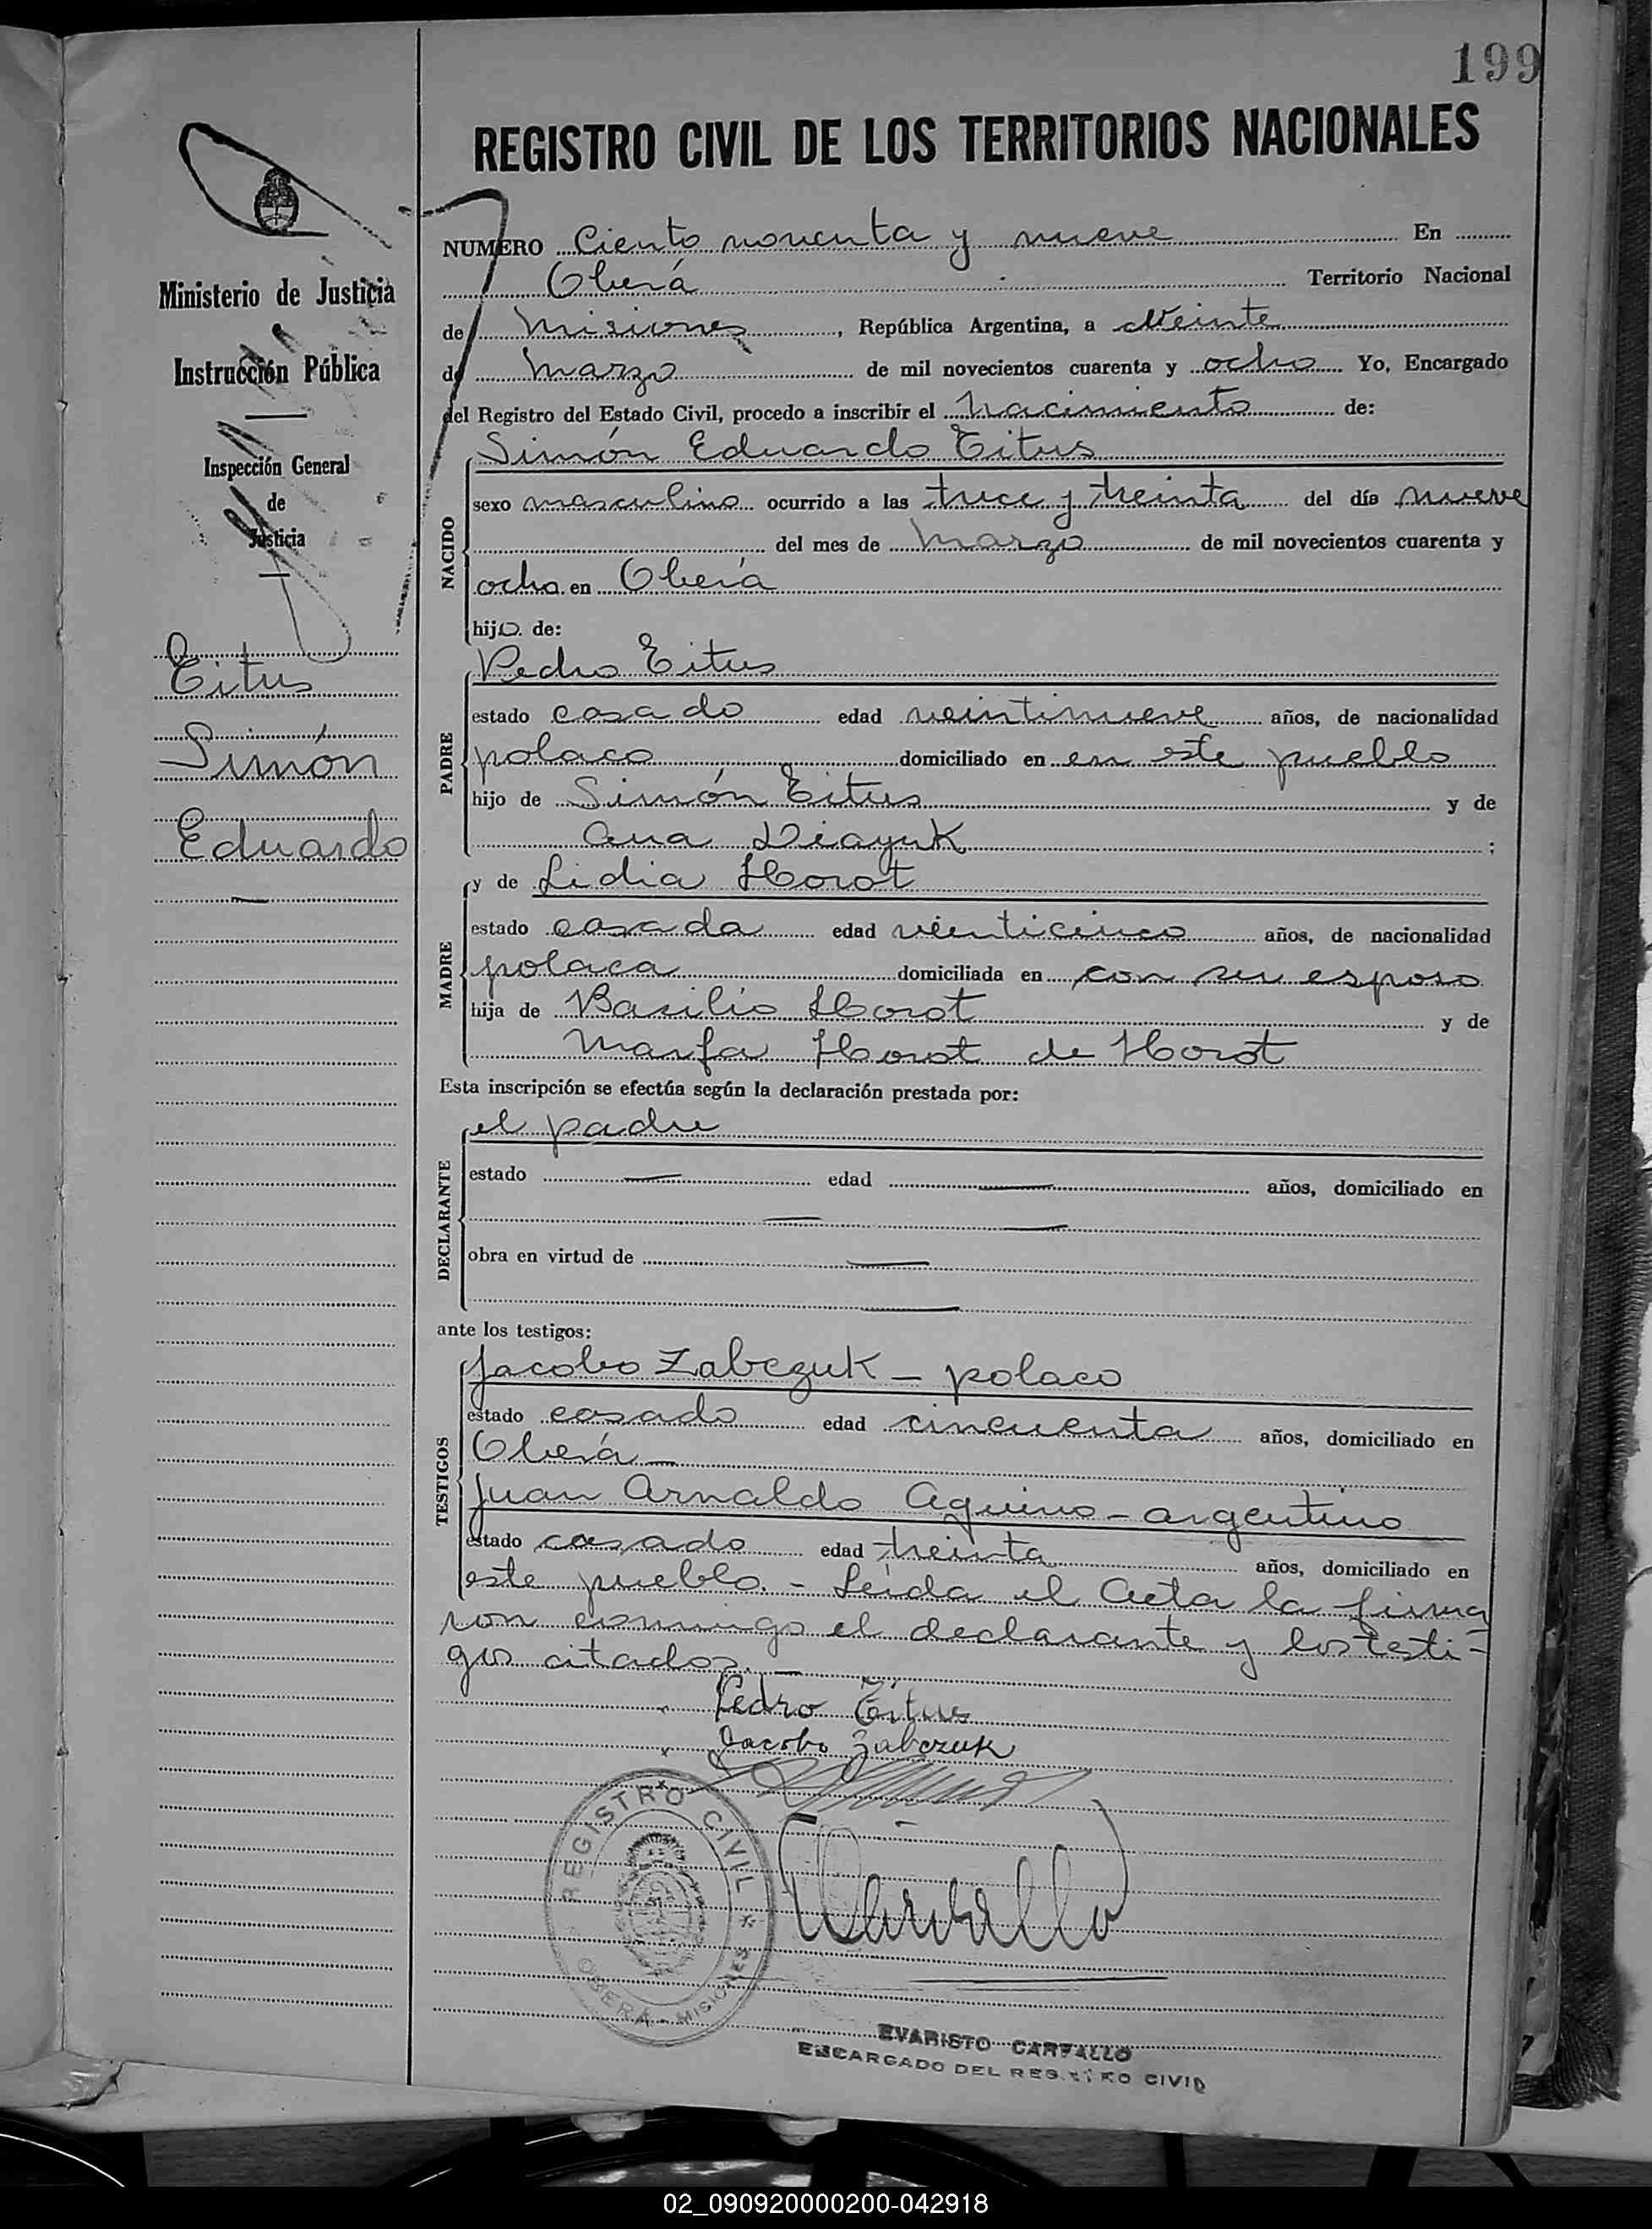 199
REGISTRO CIVIL DE LOS TERRITORIOS NACIONALES
Ministerio de Justicia
Instrucción Pública
Inspección General
de
Justicia
Titus
Simón
Eduardo
NUMERO Ciento noventa y nueve En
Oberá Territorio Nacional
de Misiones, República Argentina, a Veinte
de Marzo de mil novecientos cuarenta y ocho Yo, Encargado
del Registro del Estado Civil, procedo a inscribir el Nacimiento de:
NACIDO
Simón Eduardo Titus
sexo masculino ocurrido a las trece y treinta del día nueve
del mes de Marzo de mil novecientos cuarenta y
ocho en Oberá
hijo de:
PADRE
Pedro Titus
estado casado edad veintinueve años, de nacionalidad
polaco domiciliado en en este pueblo
hijo de Simón Titus y de
Ana ;
y de Lidia Horot
MADRE
estado casada edad veinticinco años, de nacionalidad
polaca domiciliada en con su esposo
hija de Basilio Horot y de
Marfa Horot de Horot
Esta inscripción se efectúa según la declaración prestada por:
DECLARANTE
el padre
estado — edad — años, domiciliado en
— —
obra en virtud de —
—
ante los testigos:
TESTIGOS
Jacobo Zabczuk - polaco
estado casado edad cincuenta años, domiciliado en
Oberá —
Juan Arnaldo Aquino - argentino
estado casado edad treinta años, domiciliado en
este pueblo. - Leída el Acta la firma
ron conmigo el declarante y los testi-
gos citados. —
Pedro Titus
Jacobo Zabczuk
Carvallo
REGISTRO CIVIL
OBERA - MISIONES
EVARISTO CARVALLO
ENCARGADO DEL REGISTRO CIVIL
02_090920000200-042918